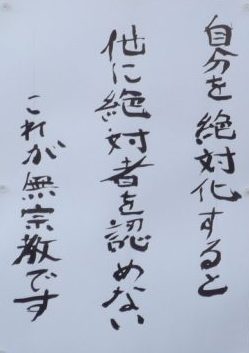 自分を絶対化すると
他に絶対者を認めない
これが無宗教です